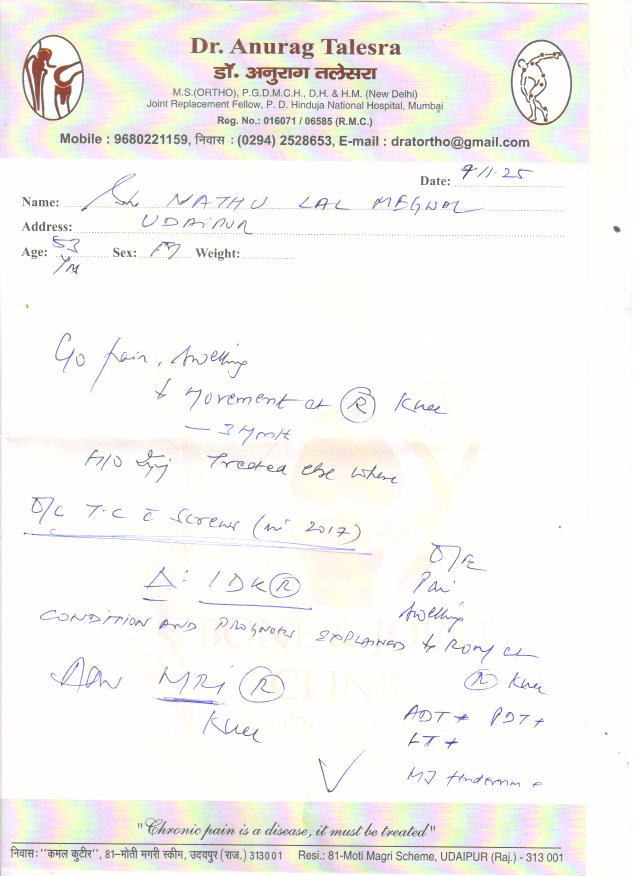 Dr. Anurag Talesra
डॉ. अनुराग तलेसरा
M.S.(ORTHO), P.G.D.M.C.H., D.H. & H.M. (New Delhi)
Joint Replacement Fellow, P. D. Hinduja National Hospital, Mumbai
Reg. No.: 016071 / 06585 (R.M.C.)
Mobile : 9680221159, निवास : (0294) 2528653, E-mail : dratortho@gmail.com
Date: 9-11-25
Name: Sh NATHU LAL MEGWAL
Address: UDAIPUR
Age: 53 Yrs Sex: M Weight:
C/o pain, swelling
↓ Movement at R Knee
H/O Inj Treated else where
O/C T-C c̄ Screws (in 2017)
Δ: IDK R
CONDITION AND PROGNOSIS EXPLAINED
Adv MRI R
Knee
O/E
Pain
swelling
↓ ROM at
R Knee
ADT + PDT +
LT +
BONE & JOINT
CLINIC
"Chronic pain is a disease, it must be treated"
निवास: "कमल कुटीर", 81-मोती मगरी स्कीम, उदयपुर (राज.) 313001 Resi.: 81-Moti Magri Scheme, UDAIPUR (Raj.) - 313 001